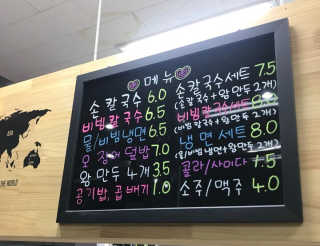 메뉴
손칼국수 6.0
비빔칼국수 6.5
물/비빔냉면 6.5
오징어덮밥 7.0
왕만두 4개 3.5
공기밥, 곱빼기 1.0
손칼국수세트 7.5
(손칼국수+왕만두2개)
비빔칼국수세트 8.0
(비빔칼국수+왕만두2개)
냉면세트 8.0
(물/비빔냉면+왕만두2개)
콜라/사이다 1.5
소주/맥주 4.0
THE WORLD